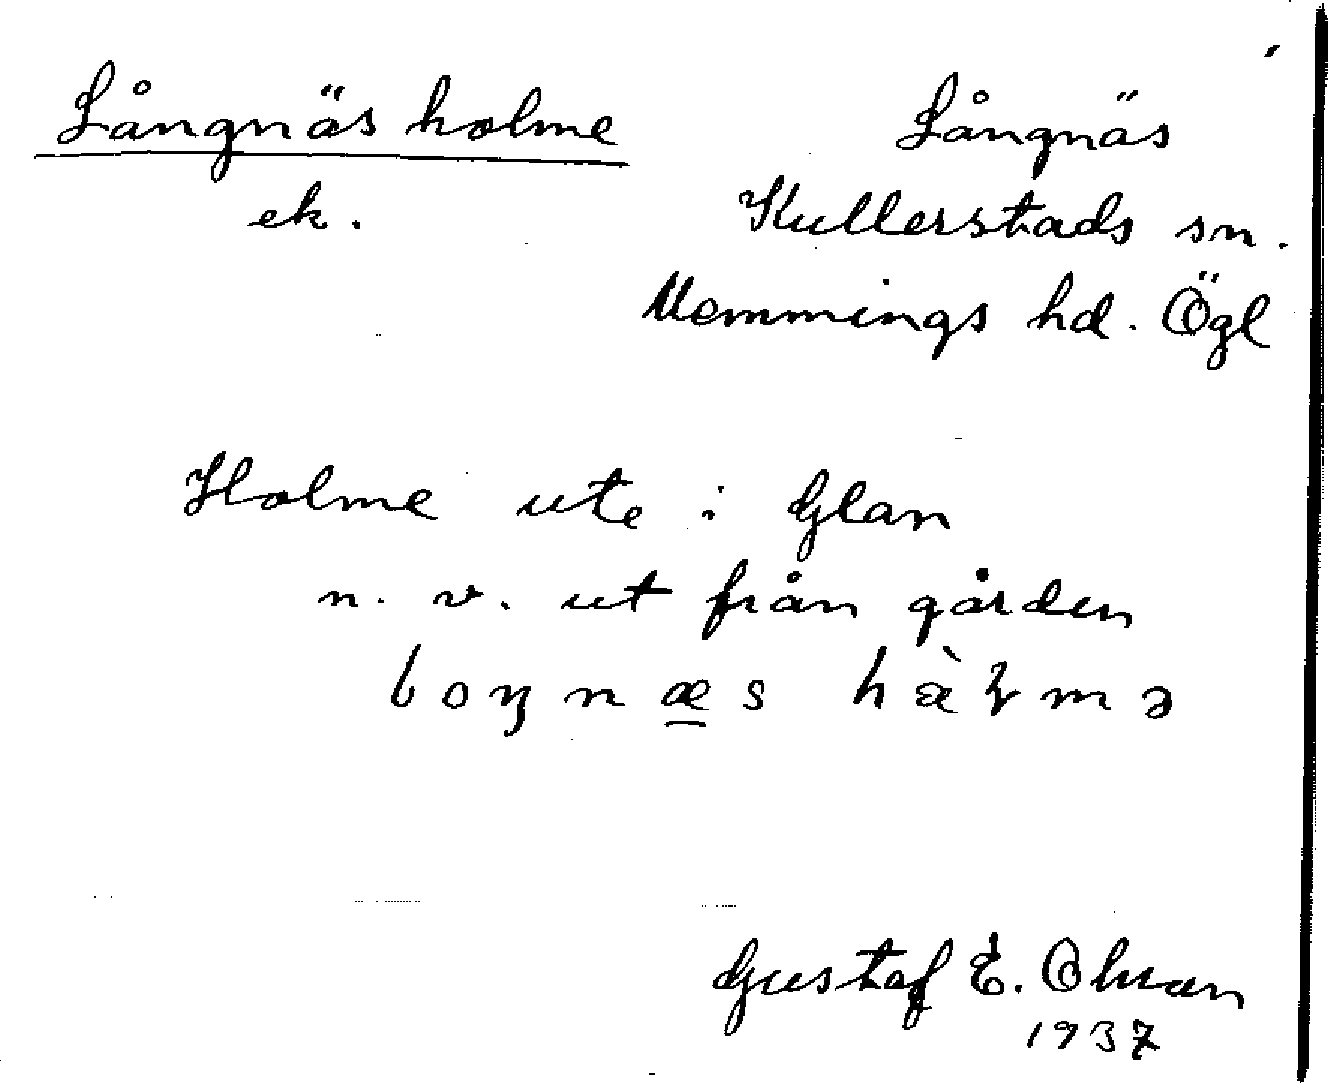 Långnäs holme
ek.
Långnäs
Kullerstads sn.
Memmings hd. Ögl
Holme ute i Glan
n. v. ut från gården
loŋnæs hàɽmə
Gustaf E.
1937